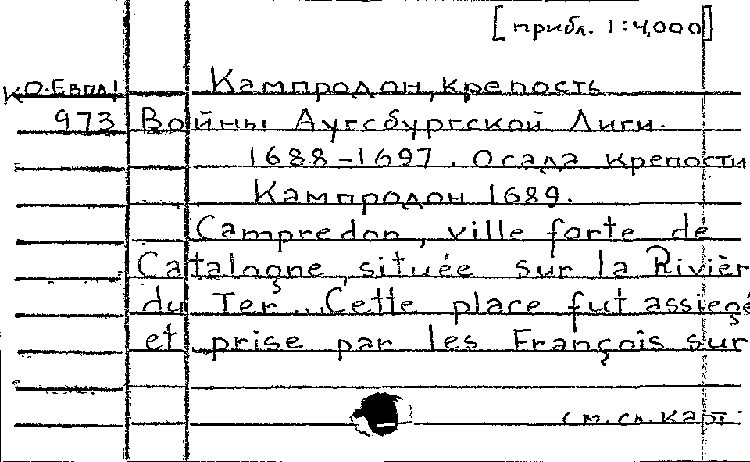 [прибл. 1:4,000]
Ко.Евпл1 Кампродон, крепость
973 Войны Аугсбургской Лиги.
1688-1697. Осада крепости
Кампродон 1689.
Campredon, ville forte de
Catalogne, située sur la Rivièr
du Ter... Cette place fut assiegé
et prise par les François sur
см. сл. карт.